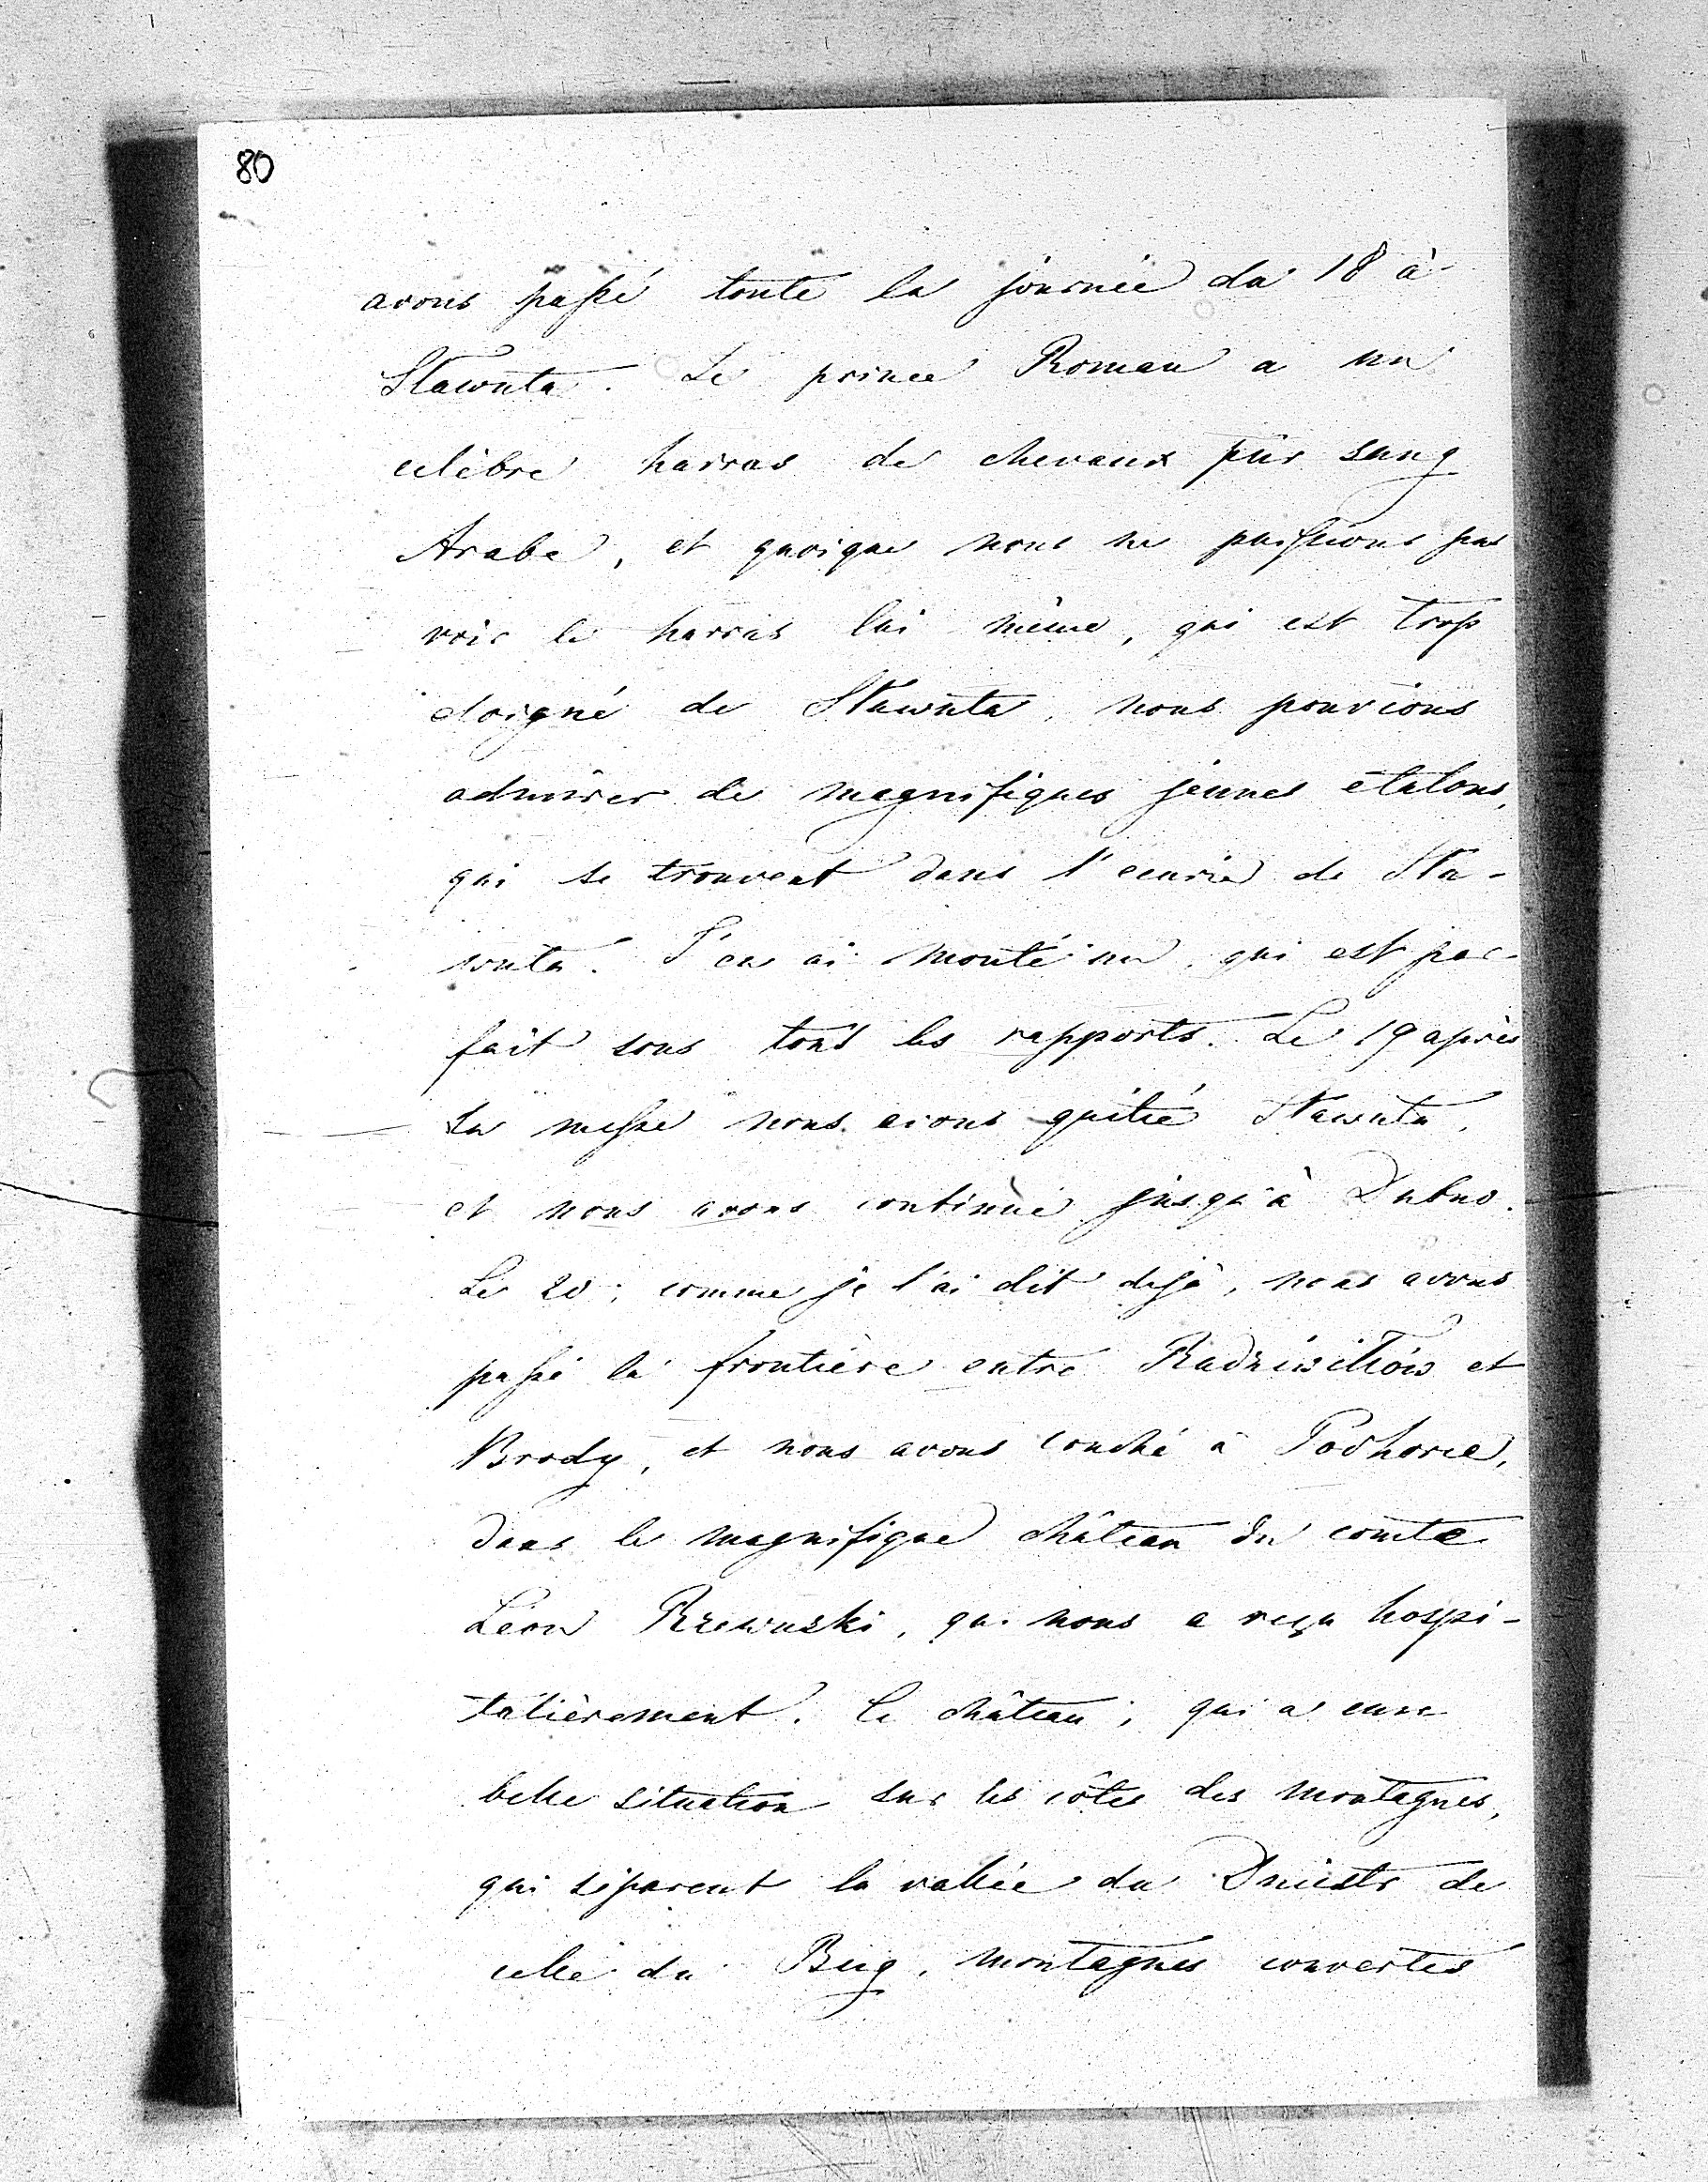 80
avons passé toute la journée du 18 à
Sławuta. Le prince Roman a un
celèbre harras de chevaux pur sang
Arabe, et quoique nous ne puissions pas
voir le harras lui même, qui est trop
eloigné de Sławuta, nous pouvions
admirer de magnifiques jeunes étalons,
qui se trouvent dans l'ecurie de Sła-
wuta. J'en ai monté un, qui est par-
fait sous tous les rapports. Le 19 après
la messe nous avons quitté Sławuta,
et nous avons continué jusqu'à Dubno.
Le 20, comme je l'ai dit dejà, nous avons
passé la frontière entre Radziwiłłów et
Brody, et nous avons couché à Podhorce,
dans le magnifique château du comte
Léon Rzewuski, qui nous a reçu hospi-
talièrement. Le château, qui a une
belle situation sur les côtes des montagnes,
qui séparent la vallée du Dniestr de
celle du Bug, montagnes couvertes